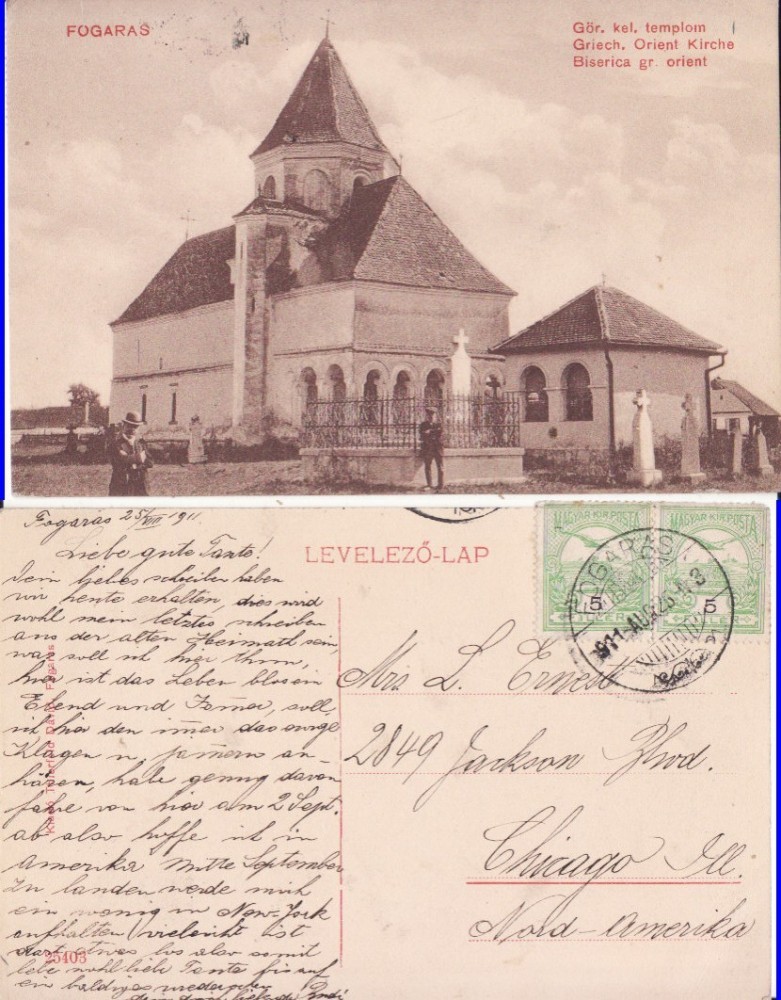 FOGARAS
Gör. kel. templom
Griech. Orient Kirche
Biserica gr. orient
Fogaras 25/VIII 1911
Liebe gute Tante!
Dein liebes schreiben haben
wir heute erhalten, dies wird
wohl mein letztes schreiben
aus der alten Heimath sein
was soll ich hier thun,
hier ist das Leben blos ein
Elend und Jam̄er, soll
ich hier den im̄er das ewige
Klagen u. jam̄ern an-
hören, habe genug davon
fahre von hier am 2 Sept.
ab also hoffe ich in
Amerika Mitte September
Zu landen werde mich
ein wenig in New-York
aufhalten vieleicht ist
dort etwas los also somit
lebe wohl liebe Tante bis auf
ein baldiges wiedersehen
LEVELEZŐ-LAP
MAGYAR KIR. POSTA
MAGYAR KIR. POSTA
5
5
FOGARAS
911 AUG 25
Mrs L. Ernest
2849 Jackson Blvd.
Chicago Ill.
Nord-Amerika
Fogaras
25403